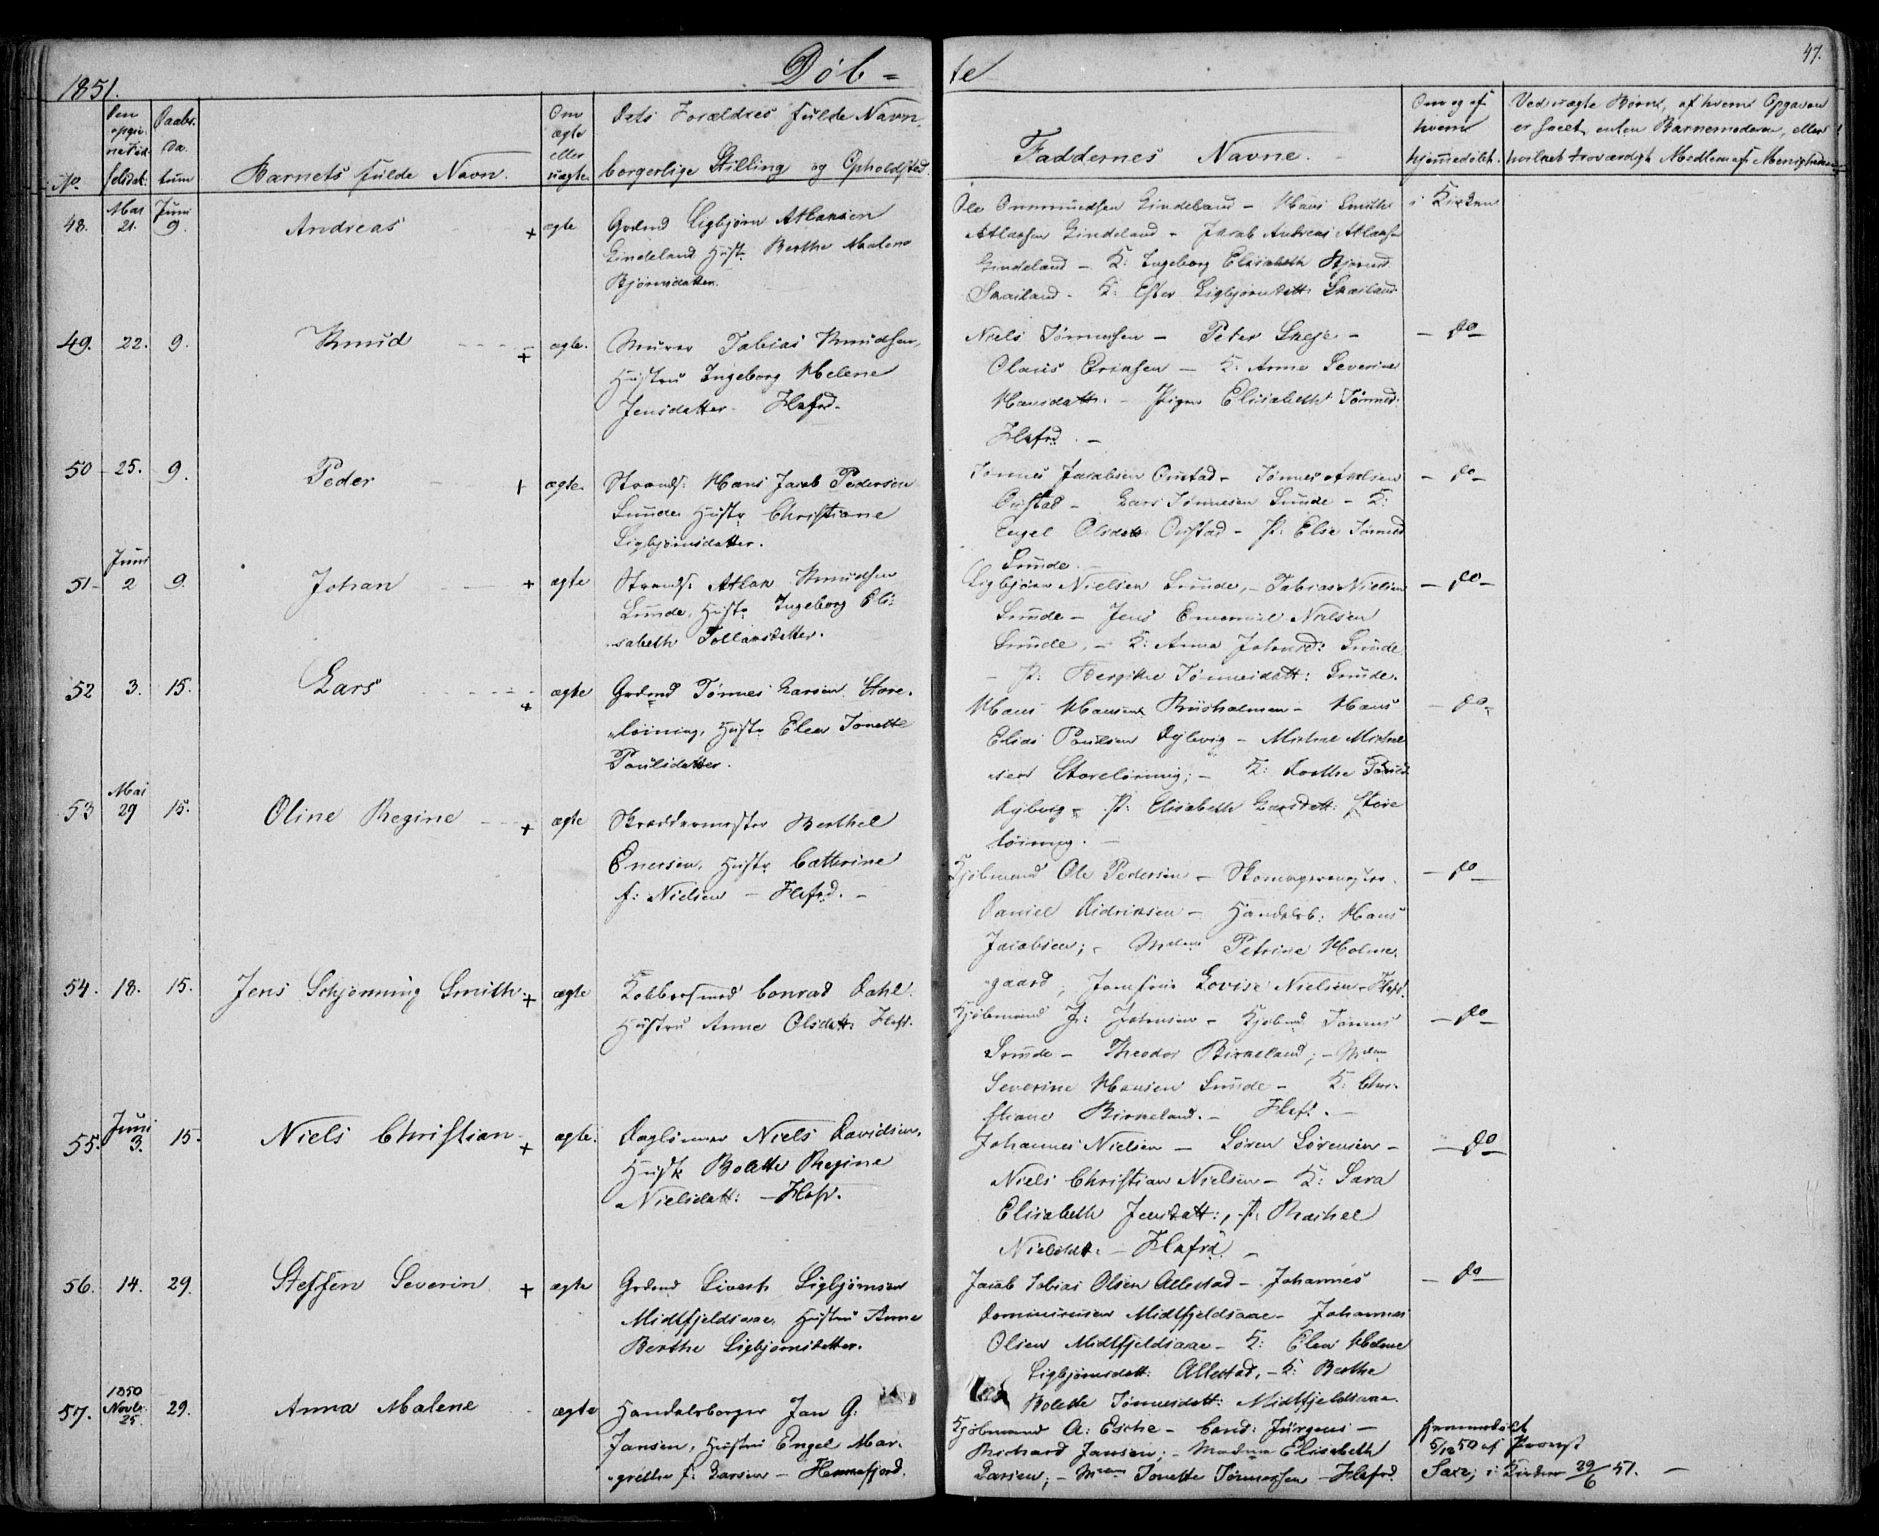 1851.
Døb=
te
47.
No
Den opgivne Fødselsdat.
Daabsdatum
Barnets fulde Navn.
Om ægte eller uægte
Dets Forældres fulde Navn,
borgerlige Stilling og Opholdsted.
Faddernes Navne.
Om og af hvem hjemmedøbt.
Ved uægte Børn, af hvem Opgaven
er skeet, enten Barnemoderen, eller
hvilket troværdigt Medlem af Menigheden
48. Mai 21. Juni 9. Andreas + ægte
Grdmd Sigbjørn Atlaksen
Gindeland Hust. Berthe Malene
Bjørnsdatter.
Ole Ommundsen Gindeland - Hans Smith
Atlaksen Gindeland - Jacob Andreas Atlaksen
Gindeland - K: Ingeborg Elisabeth
Skailand - K: Ester Sigbjørnsdatt: Skailand
i Kirken
49. 22. 9. Knud + ægte.
Murer Tobias Knudsen,
Hustru Ingeborg Helene
Jensdatter. Flefrd.
Niels Tønnesen - Peter Skeje -
Olaus Eriksen - K: Anne Severine
Hansdatt: - Pigen Elisabeth Tønnesd:
Flefrd. -
- do -
50 25. 9. Peder + ægte.
Strands: Hans Jacob Pedersen
Sunde Hustr Christiane
Sigbjørnsdatter.
Tønnes Jacobsen Onstad - Tønnes Axelsen
Onstad - Lars Tønnesen Sunde - K:
Engel Olsdatt Onstad - P: Else Tønnesd
Sunde. -
- do -
51 Juni 2 9. Johan + ægte
Strands: Atlak Knudsen
Sunde, Hustr Ingeborg Eli-
sabeth Tollaksdatter.
Sigbjørn Nielsen Sunde, - Tobias Nielsen
Sunde - Jens Emanuel Nielsen
Sunde, - K: Anna Johnsd: Sunde
- P: Bergitte Tønnesdatt: Sunde.
- do -
52 3. 15. Lars + ægte
Grdmd Tønnes Larsen Store-
løining, Hustr Elen Tonette
Poulsdatter.
Hans Hansen Risholmen - Hans
Elias Poulsen Dylevig - Mikkel Mikkel
sen Storeløining; - K: Dorthe Poulsd
Dylevig - P: Elisabeth Larsdatt: Store
løining. -
- do -
53 Mai 29 15. Oline Regine + ægte
Skræddermester Berthel
Enersen, Hustr Catherine
f: Nielsen - Flefrd. -
Kjøbmand Ole Pedersen - Skomagermester
Daniel Didriksen - Handelsb: Hans
Jacobsen; - Mdme Petrine Holme-
gaard; Jomfrue Lovise Nielsen - Flefr.
- do -
54. 18. 15. Jens Schjønning Smith. + ægte
Kobbersmed Conrad Dahl.
Hustru Anne Olsdatt: Flefr.
Kjøbmand J: Johnsen - Kjøbmd Tønnes
Sunde - Theodor Birkeland; - Mdme
Severine Hansen Sunde - K: Chri-
stiane Birkeland. - Flefr. -
- do -
55. Juni 3. 15. Niels Christian + ægte.
Dagleiner Niels Davidsen,
Hustr Bolette Regine
Nielsdatt: - Flefr.
Johannes Nielsen - Søren Sørensen -
Niels Christian Nielsen - K: Sara
Elisabeth Jensdatt:, P: Rachel
Nielsdt. - Flefrd. -
- do -
56. 14. 29. Steffen Severin + ægte
Grdmd Sivert Sigbjørnsen
Midtfjeldsaae, Hustru Anne
Berthe Sigbjørnsdatter.
Jacob Tobias Olsen Allestad - Johannes
Midtfjeldsaae - Johannes
Olsen Midtfjeldsaae - K: Elen Helene
Sigbjørnsdatt: Allestad, - K: Berthe
Bolette Tønnesdatt: Midtfjeldsaae
- do -
57. 1850 Novbr 25. 29. Anna Malene ægte
Handelsborger Jan G:
Jansen, Hustru Engel Mar-
grethe f: Larsen - Flekkefjord.
Kjøbmand A: Esche - Cand: Jürgens -
Richard Jansen; - Madme Elisabeth
Larsen; - Mdme Tonette Tønnessen - Flefrd
hjemmedøbt
5/12 50 af Provst
Saxe; i Kirken 29/6 51. -